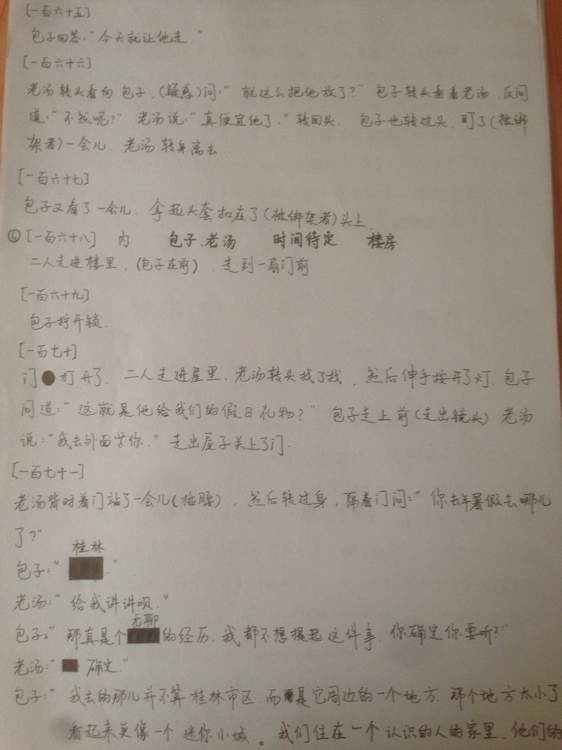 [一百六十五]
包子回答:“今天就让他走.”
[一百六十六]
老汤转头看向包子,(疑惑)问:“就这么把他放了?”包子转头看着老汤,反问
道:“不然呢?”老汤说:“真便宜他了.”转回头.包子也转过头,盯了(被绑
架者)一会儿.老汤转身离去
[一百六十七]
包子又看了一会儿.拿起头套扣在了(被绑架者)头上
[一百六十八] 内 包子、老汤 时间待定 楼房
二人走进楼里.(包子在前) 走到一扇门前
[一百六十九]
包子拧开锁.
[一百七十]
门打开了.二人走进屋里.老汤转头找了找,然后伸手按开了灯.包子
问道:“这就是他给我们的假日礼物?”包子走上前(走出镜头)老汤
说:“我去外面等你.”走出屋子关上了门.
[一百七十一]
老汤背对着门站了一会儿(抽烟),然后转过身,隔着门问:“你去年暑假去哪儿
了?”
包子:“桂林.”
老汤:“给我讲讲呗.”
包子:“那真是个无聊的经历.我都不想提起这件事.你确定你要听?”
老汤:“确定.”
包子:“我去的那儿并不算桂林市区.而是它周边的一个地方.那个地方太小了
看起来更像一个迷你小城。我们住在一个认识的人的家里.他们的